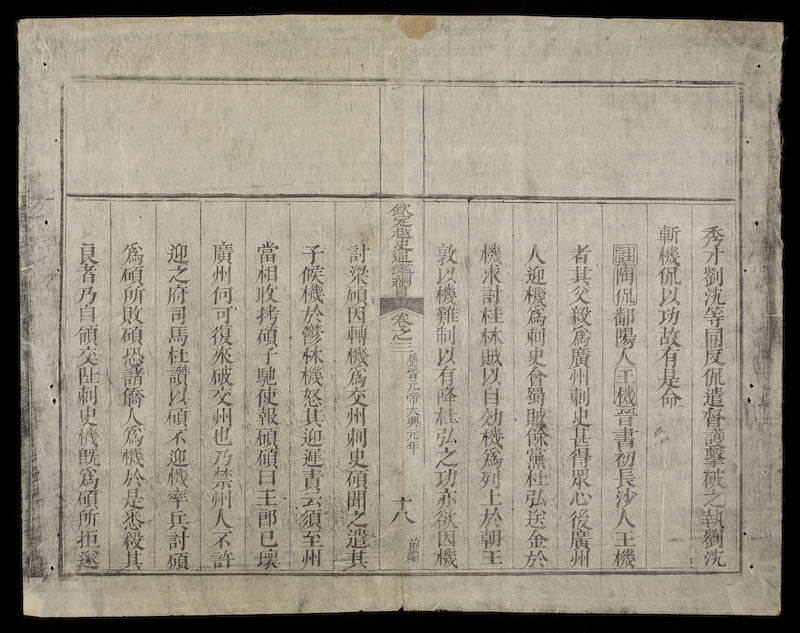 秀才劉沈等同反侃遣督護擊破之執劉沈
斬機侃以功故有是命
註陶侃鄱陽人王機晉書初長沙人王機
者其父毅爲廣州刺史甚得眾心後廣州
人迎機爲刺史會蜀賊餘黨杜弘送金於
機求討桂林賊以自効機爲列上於朝王
敦以機難制以有降杜弘之功亦欲因機
欽定越史通鑑綱目 卷之三 屬晉元帝大興元年 十八 前編
討梁碩因轉機爲交州刺史碩聞之遣其
子候機於鬱林機怒其迎遲責云須至州
當相收拷碩子馳使報碩碩曰王郎已壞
廣州何可復來破交州也乃禁州人不許
迎之府司馬杜讚以碩不迎機率兵討碩
爲碩所敗碩恐諸僑人爲機於是悉殺其
良者乃自領交阯刺史機既爲碩所拒遂